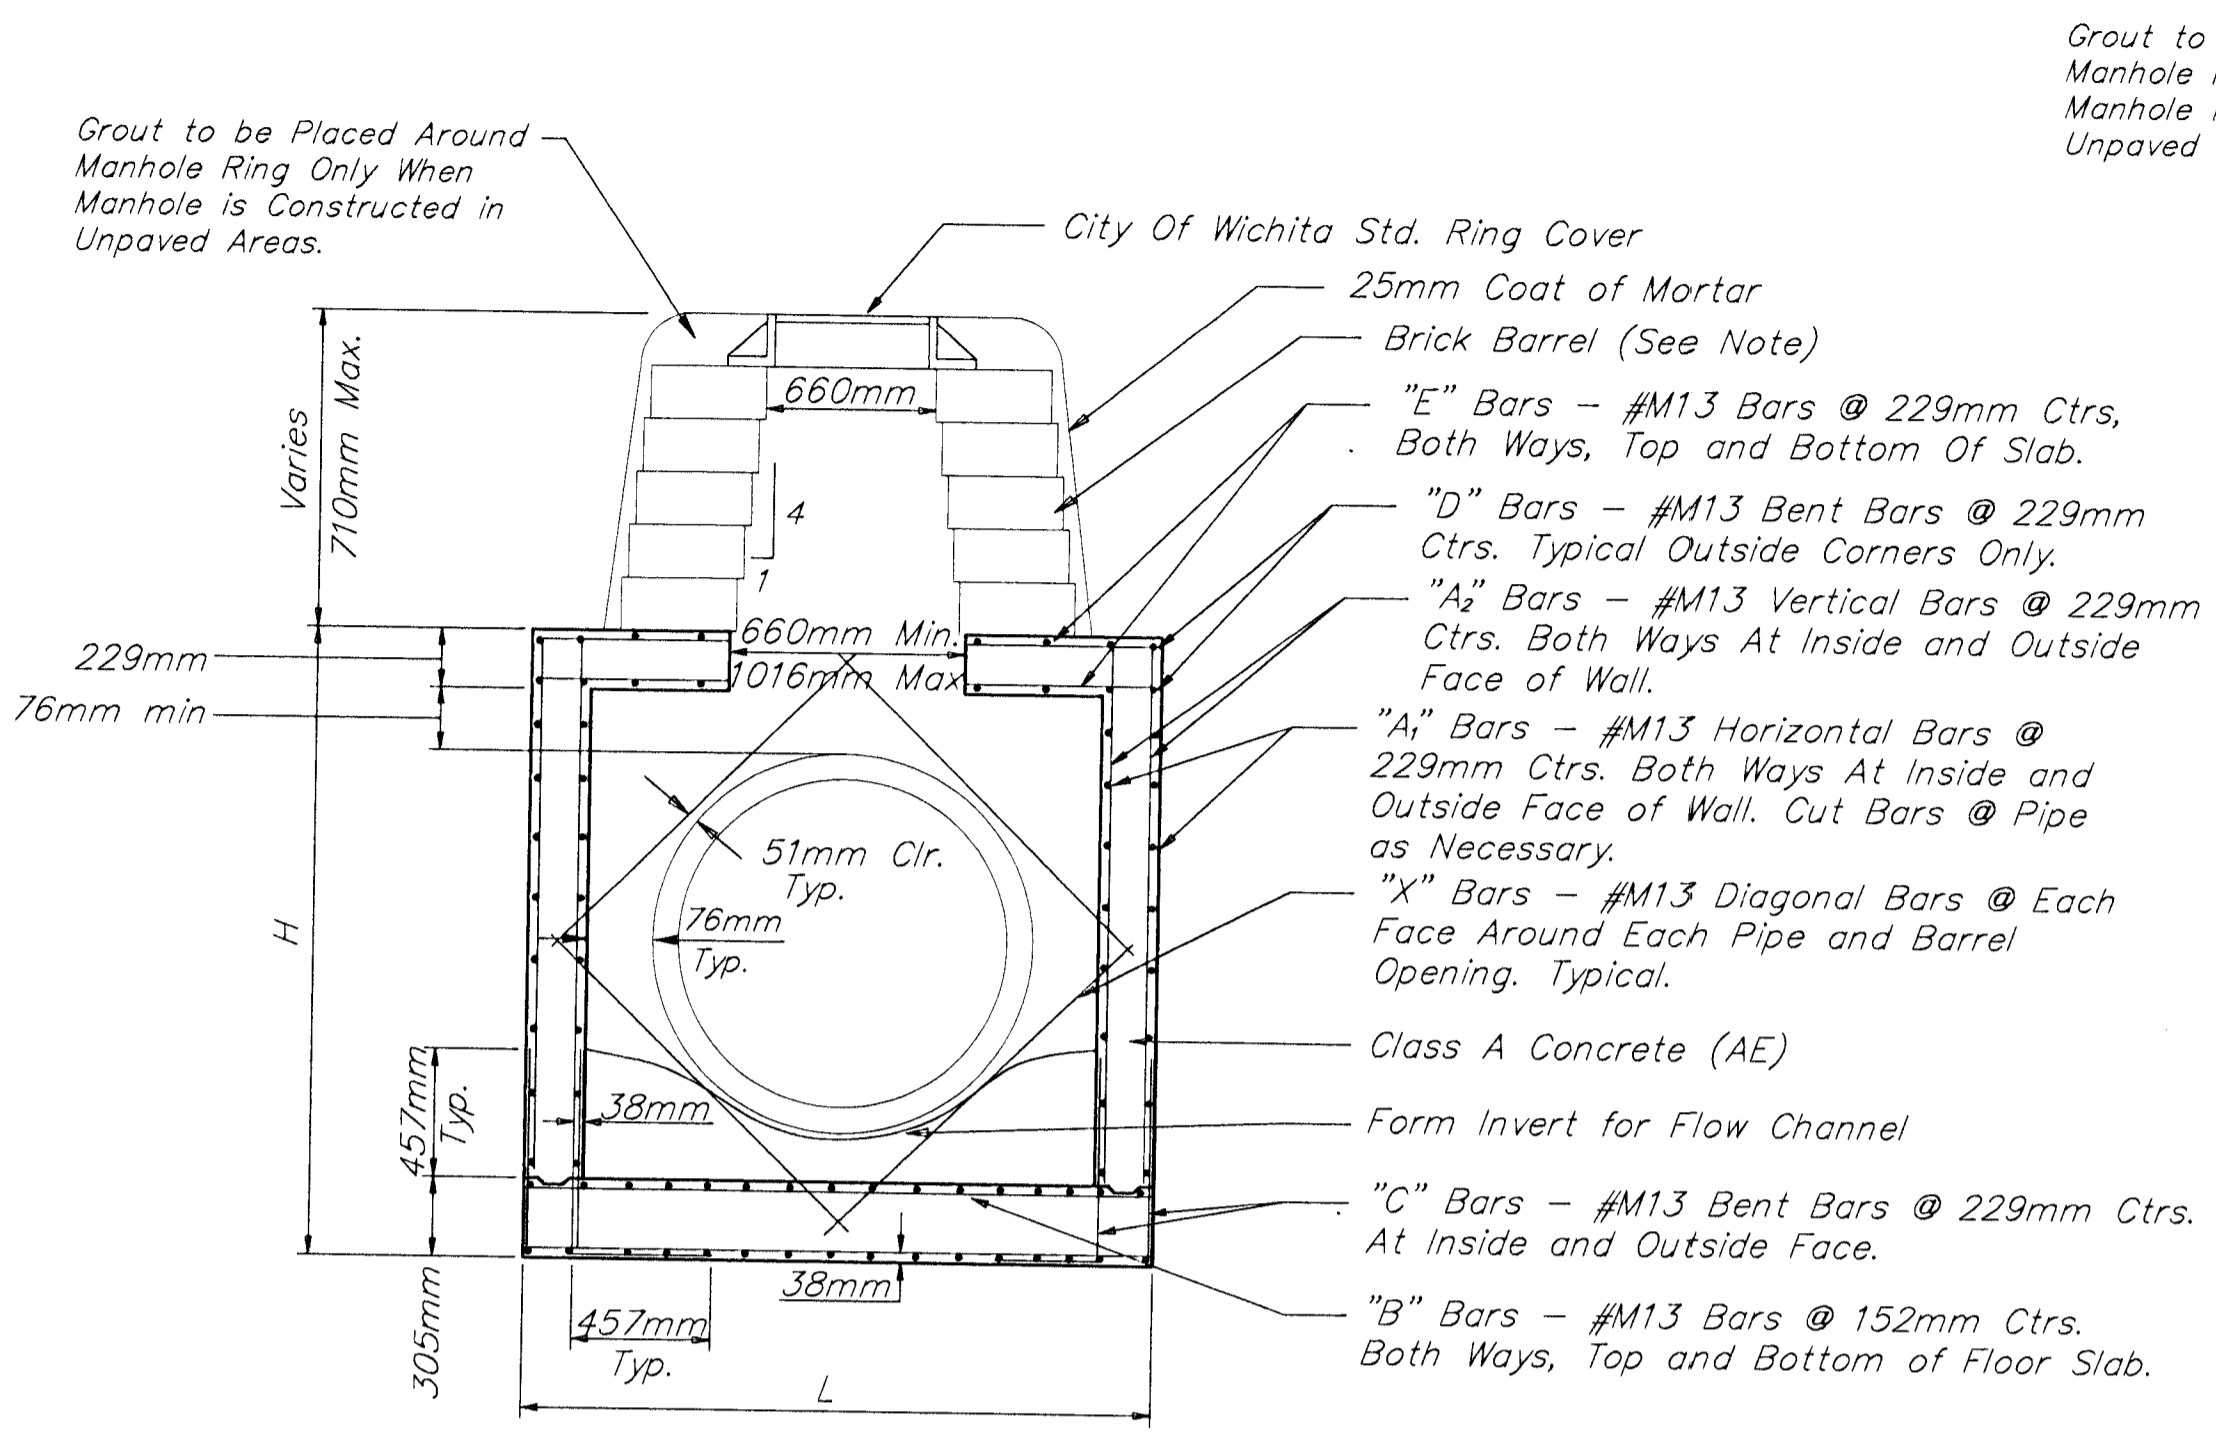 Grout to be Placed Around
Manhole Ring Only When
Manhole is Constructed in
Unpaved Areas.
Grout to
Manhole
Manhole
Unpaved
City Of Wichita Std. Ring Cover
25mm Coat of Mortar
Brick Barrel (See Note)
"E" Bars - #M13 Bars @ 229mm Ctrs,
Both Ways, Top and Bottom Of Slab.
"D" Bars - #M13 Bent Bars @ 229mm
Ctrs. Typical Outside Corners Only.
"A2" Bars - #M13 Vertical Bars @ 229mm
Ctrs. Both Ways At Inside and Outside
Face of Wall.
"A1" Bars - #M13 Horizontal Bars @
229mm Ctrs. Both Ways At Inside and
Outside Face of Wall. Cut Bars @ Pipe
as Necessary.
"X" Bars - #M13 Diagonal Bars @ Each
Face Around Each Pipe and Barrel
Opening. Typical.
Class A Concrete (AE)
Form Invert for Flow Channel
"C" Bars - #M13 Bent Bars @ 229mm Ctrs.
At Inside and Outside Face.
"B" Bars - #M13 Bars @ 152mm Ctrs.
Both Ways, Top and Bottom of Floor Slab.
Varies
710mm Max.
660mm
4
1
660mm Min.
1016mm Max
229mm
76mm min
51mm Clr.
Typ.
76mm
Typ.
H
457mm
Typ.
38mm
305mm
38mm
457mm
Typ.
L